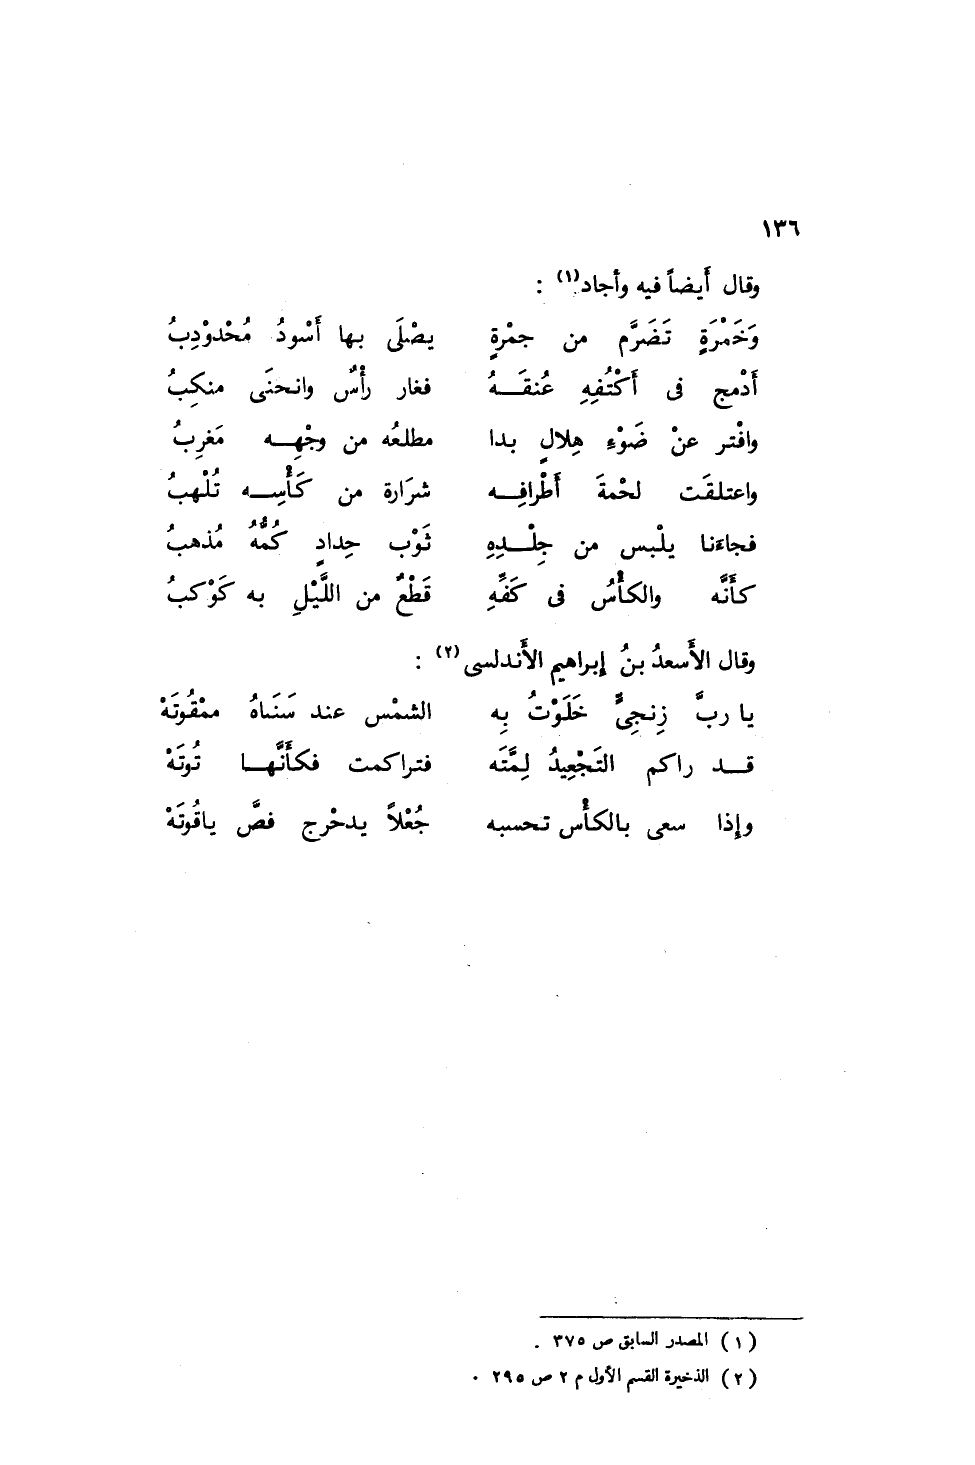 ١٣٦
وقال أَيضاً فيه وأجاد(١) :
وَخَمْرَةٍ تَضَرَّم من جمْرةٍ يصْلَى بها أَسْودُ مُحْدوْدِبُ
أَدْمج فى أَكْتُفِهِ عُنقَــهُ فغار رأْسٌ وانحنَى منكِبُ
وافْتر عنْ ضَوْءِ هِلالٍ بدا مطلعُه من وجْهِــه مَغرِبُ
واعتلقَت لحْمةَ أَطْرافِــه شرَارة من كَأْسِــه تُلْهبُ
فجاءَنا يلْبس من جِلْــدِهِ ثَوْب حِدادٍ كُمُّهُ مُذهبُ
كأَنَّه والكأْسُ فى كَفِّهِ قَطْعٌ من اللَّيْلِ به كَوْكبُ
وقال الأَسعدُ بنُ إبراهيم الأَندلسى(٢) :
يا ربَّ زِنجِىٍّ خَلَوْتُ بِه الشمْس عند سَنَاهُ ممْقُوتَهْ
قــد راكم التَجْعِيدُ لِمَّتَه فتراكمت فكأَنَّهــا تُوتَهْ
وإذا سعى بالكأْس تحسبه جُعْلاً يدحْرج فصَّ ياقُوتَهْ
(١) المصدر السابق ص ٣٧٥ .
(٢) الذخيرة القسم الأول م ٢ ص ٢٩٥ .